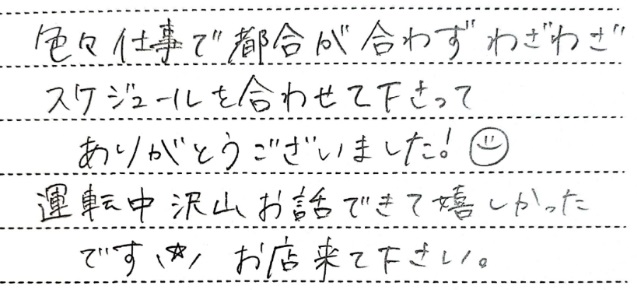 色々仕事で都合が合わずわざわざ
スケジュールを合わせて下さって
ありがとうございました!
運転中沢山お話できて嬉しかった
です☆ お店来て下さい。